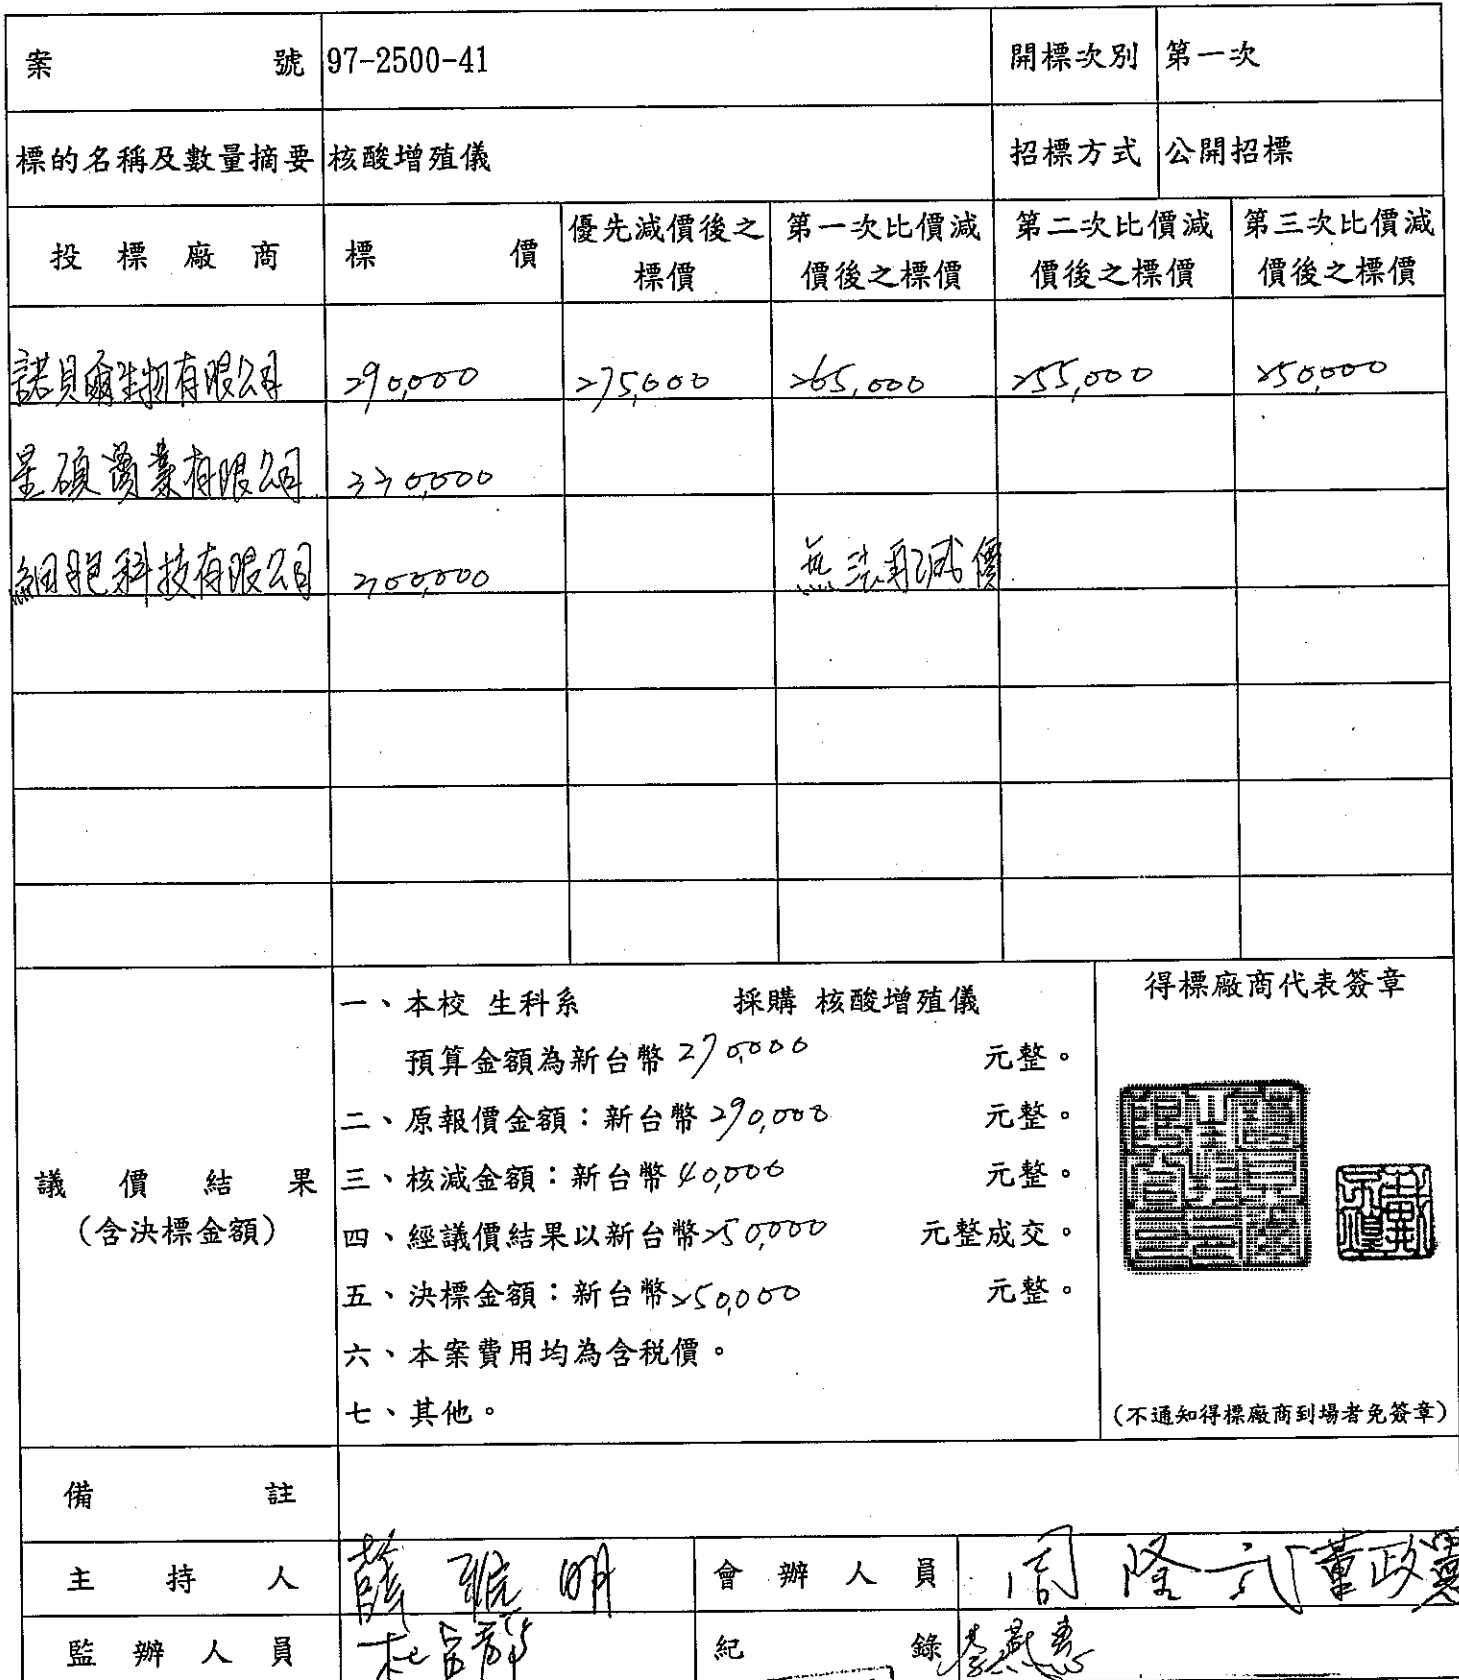 案 號 97-2500-41 開標次別 第一次
標的名稱及數量摘要 核酸增殖儀 招標方式 公開招標
投標廠商 標價 優先減價後之標價 第一次比價減價後之標價 第二次比價減價後之標價 第三次比價減價後之標價
諾貝爾生物有限公司 290,000 275,000 265,000 255,000 250,000
星碩實業有限公司 330,000
細胞科技有限公司 300,000 無法再減價
議價結果
(含決標金額)
一、本校 生科系 採購 核酸增殖儀
預算金額為新台幣 270,000 元整。
二、原報價金額：新台幣 290,000 元整。
三、核減金額：新台幣 40,000 元整。
四、經議價結果以新台幣 250,000 元整成交。
五、決標金額：新台幣 250,000 元整。
六、本案費用均為含稅價。
七、其他。
得標廠商代表簽章
(不通知得標廠商到場者免簽章)
備註
主持人 會辦人員 周隆武 董政
監辦人員 紀錄